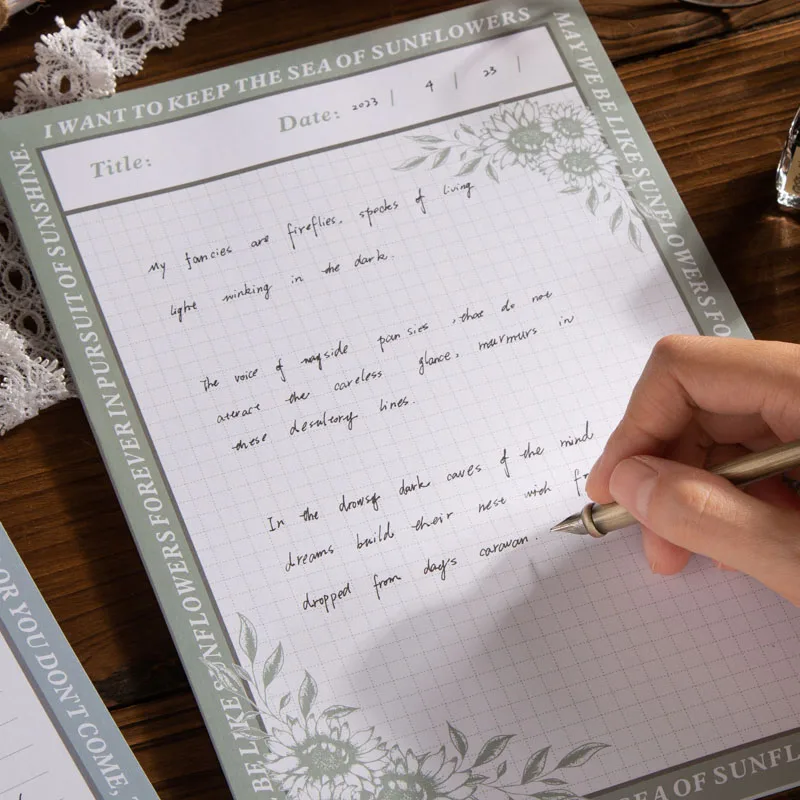 I WANT TO KEEP THE SEA OF SUNFLOWERS
MAY WE BE LIKE SUNFLOWERS FO
Title:
Date: 2023 | 4 | 23 |
My fancies are fireflies, specks of living
light winking in the dark.
The voice of wayside pansies, that do not
attract the careless glance, murmurs in
these desultory lines.
In the drowsy dark caves of the mind
dreams build their nest with fr
dropped from day's caravan.
BE LIKE SUNFLOWERS FOREVER IN PURSUIT OF SUNSHINE.
SEA OF SUNFL
OR YOU DON'T COME,